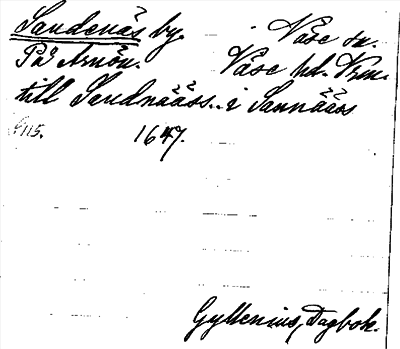 Sandenäs by. Väse sn.
På Arnön. Väse hd. Vrm.
till Sandnääs. i Sannääs
s. 115. 1647.
Gyllenius, Dagbok.